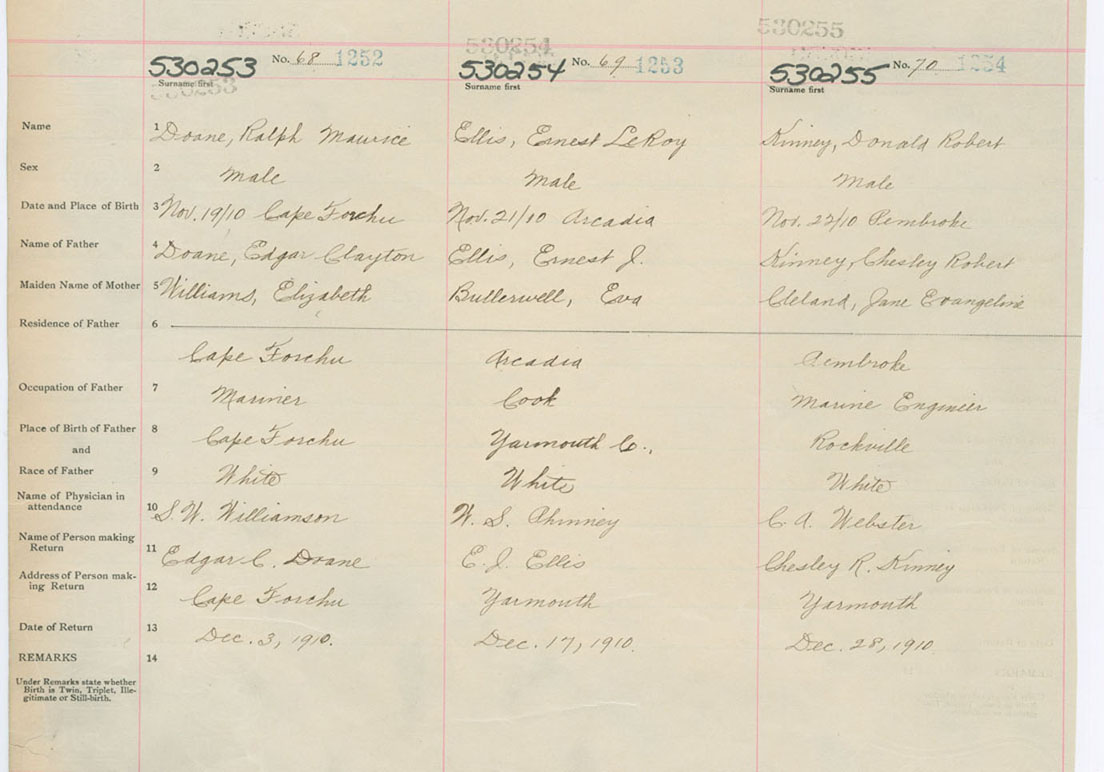 530254
530255
530253 No. 68 1252
530254 No. 69 1253
530255 No. 70 1254
530253
Surname first Surname first Surname first
Name 1 Doane, Ralph Maurice Ellis, Ernest LeRoy Kinney, Donald Robert
Sex 2 Male Male Male
Date and Place of Birth 3 Nov. 19/10 Cape Forchu Nov. 21/10 Arcadia Nov. 22/10 Pembroke
Name of Father 4 Doane, Edgar Clayton Ellis, Ernest J. Kinney, Chesley Robert
Maiden Name of Mother 5 Williams, Elizabeth Butlerwell, Eva Cleland, Jane Evangeline
Residence of Father 6
Cape Forchu Arcadia Pembroke
Occupation of Father 7 Mariner Cook Marine Engineer
Place of Birth of Father 8 Cape Forchu Yarmouth Co., Rockville
and
Race of Father 9 White White White
Name of Physician in
attendance 10 S. W. Williamson W. S. Phinney C. A. Webster
Name of Person making
Return 11 Edgar C. Doane E. J. Ellis Chesley R. Kinney
Address of Person mak-
ing Return 12 Cape Forchu Yarmouth Yarmouth
Date of Return 13 Dec. 3, 1910. Dec. 17, 1910. Dec. 28, 1910
REMARKS 14
Under Remarks state whether
Birth is Twin, Triplet, Ille-
gitimate or Still-birth.